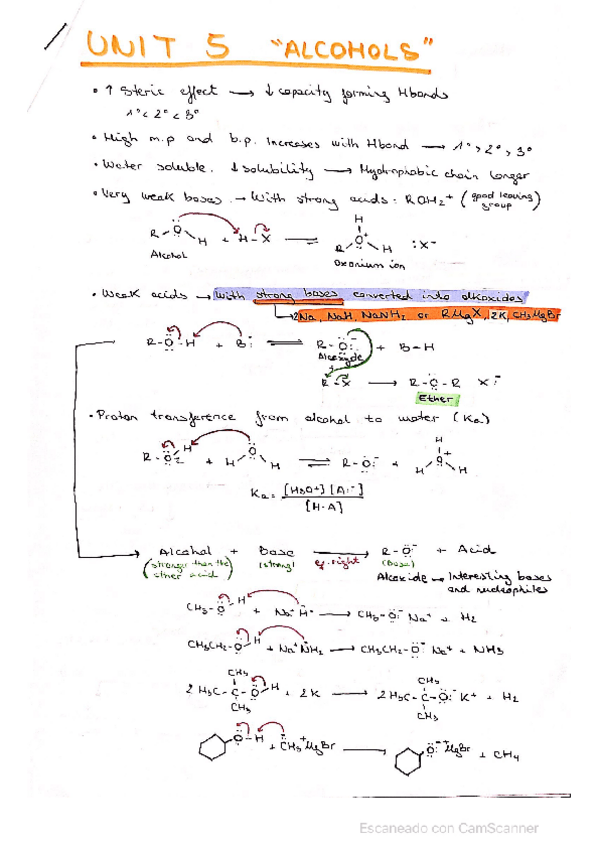 UNIT 5 "ALCOHOLS"
• ↑ Steric effect → ↓ capacity forming Hbonds
1° < 2° < 3°
• High m.p and b.p. Increases with Hbond → 1° > 2° > 3°
• Water soluble. ↓ solubility → Hydrophobic chain longer
• Very weak bases. → With strong acids: ROH2+ (good leaving group)
R-Ö-H + H-X ⇌ R-O+-H H :X-
Alcohol Oxonium ion
• Weak acids → with strong bases converted into alkoxides
→ 2Na, NaH, NaNH2 or RMgX, 2K, CH3MgBr
R-Ö-H + B:- ⇌ R-Ö:- + B-H
Alcoxyde
+
R-X → R-Ö-R X:-
Ether
• Proton transference from alcohol to water (Ka)
R-Ö-H + H-Ö-H ⇌ R-Ö:- + H-O+-H H
Ka = [H3O+] [A:-] / [H-A]
Alcohol + Base ⇌ R-Ö:- + Acid
(stronger than the other acid) (strong) eq. right (base)
Alcoxide → Interesting bases and nucleophiles
CH3-Ö-H + Na+ H:- → CH3-Ö:- Na+ + H2
CH3CH2-Ö-H + Na+ :NH2 → CH3CH2-Ö:- Na+ + NH3
CH3 CH3
2 H3C-C-Ö-H + 2K → 2 H3C-C-Ö:- K+ + H2
CH3 CH3
Ö-H + CH3- +MgBr → Ö:- +MgBr + CH4
Escaneado con CamScanner